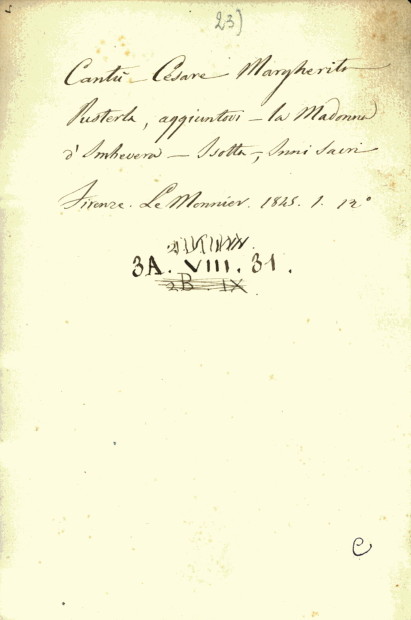 23)
Cantù - Cesare Margherita
Pusterla, aggiuntovi - la Madonna
d'Imbevera - Isotta -, Inni Sacri
Firenze. Le Monnier. 1845. 1. 12°
3A. VIII. 31.
2B. IX
C